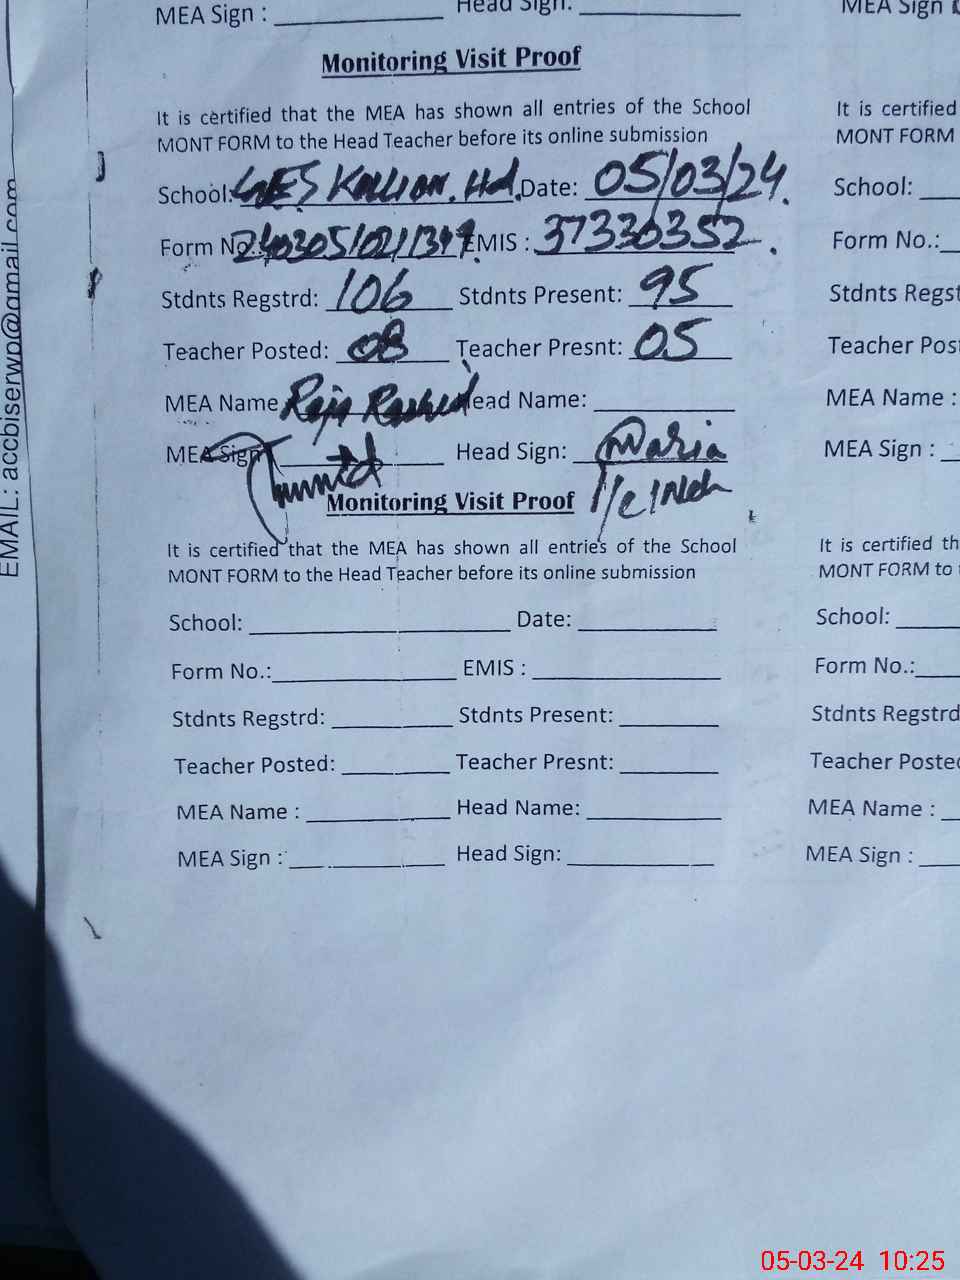 MEA Sign : Head Sign: MEA Sign
Monitoring Visit Proof
It is certified that the MEA has shown all entries of the School
MONT FORM to the Head Teacher before its online submission
School: Date: 05/03/24.
Form No.: EMIS : 37330352
Stdnts Regstrd: 106 Stdnts Present: 95
Teacher Posted: 08 Teacher Presnt: 05
MEA Name Raja Rashid Head Name:
MEA Sign Head Sign: Maria
Monitoring Visit Proof
It is certified that the MEA has shown all entries of the School
MONT FORM to the Head Teacher before its online submission
School: Date:
Form No.: EMIS :
Stdnts Regstrd: Stdnts Present:
Teacher Posted: Teacher Presnt:
MEA Name : Head Name:
MEA Sign : Head Sign:
It is certified
MONT FORM
School:
Form No.:
Stdnts Regst
Teacher Pos
MEA Name :
MEA Sign :
It is certified th
MONT FORM to
School:
Form No.:
Stdnts Regstrd
Teacher Poste
MEA Name :
MEA Sign :
EMAIL: accbiserwp@gmail.com
05-03-24 10:25